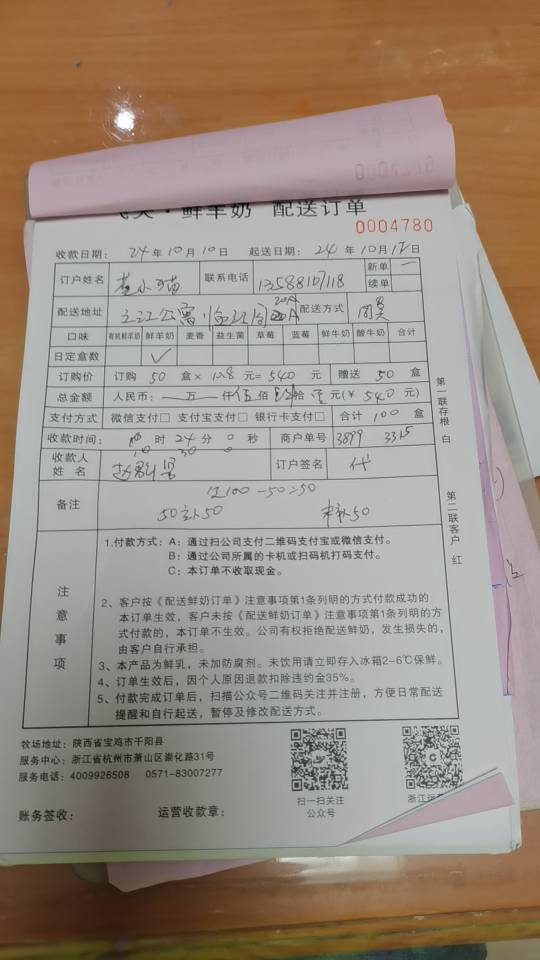 ·鲜羊奶 配送订单
0004780
收款日期: 24年10月10日 起送日期: 24年10月12日
订户姓名 联系电话 13588107118 新单 一
续单
配送地址 之江公寓 配送方式
口味 有机鲜羊奶 鲜羊奶 麦香 益生菌 草莓 蓝莓 鲜牛奶 酸牛奶 合计
日定盒数 ✓
订购价 订购 50 盒× 元= 540 元 赠送 50 盒
总金额 人民币: 一 万一仟伍佰 拾 元(¥ 540 元)
支付方式 微信支付□ 支付宝支付□ 银行卡支付□ 合计 100 盒
收款时间: 时 24 分 0 秒 商户单号 3899 3315
10 30 0
收款人
姓 名 订户签名 代
备注 100-50=50
50 50 50
第一联存根 白
第二联客户 红
注意事项
1.付款方式: A: 通过扫公司支付二维码支付宝或微信支付。
B: 通过公司所属的卡机或扫码机打码支付。
C: 本订单不收取现金。
2、客户按《配送鲜奶订单》注意事项第1条列明的方式付款成功的
本订单生效, 客户未按《配送鲜奶订单》注意事项第1条列明的方
式付款的, 本订单不生效。公司有权拒绝配送鲜奶, 发生损失的,
由客户自行承担。
3、本产品为鲜乳, 未加防腐剂。未饮用请立即存入冰箱2-6℃保鲜。
4、订单生效后, 因个人原因退款扣除违约金35%。
5、付款完成订单后, 扫描公众号二维码关注并注册, 方便日常配送
提醒和自行起送, 暂停及修改配送方式。
牧场地址: 陕西省宝鸡市千阳县
服务中心: 浙江省杭州市萧山区崇化路31号
服务电话: 4009926508 0571-83007277
扫一扫关注
公众号
浙江运
账务签收: 运营收款章: